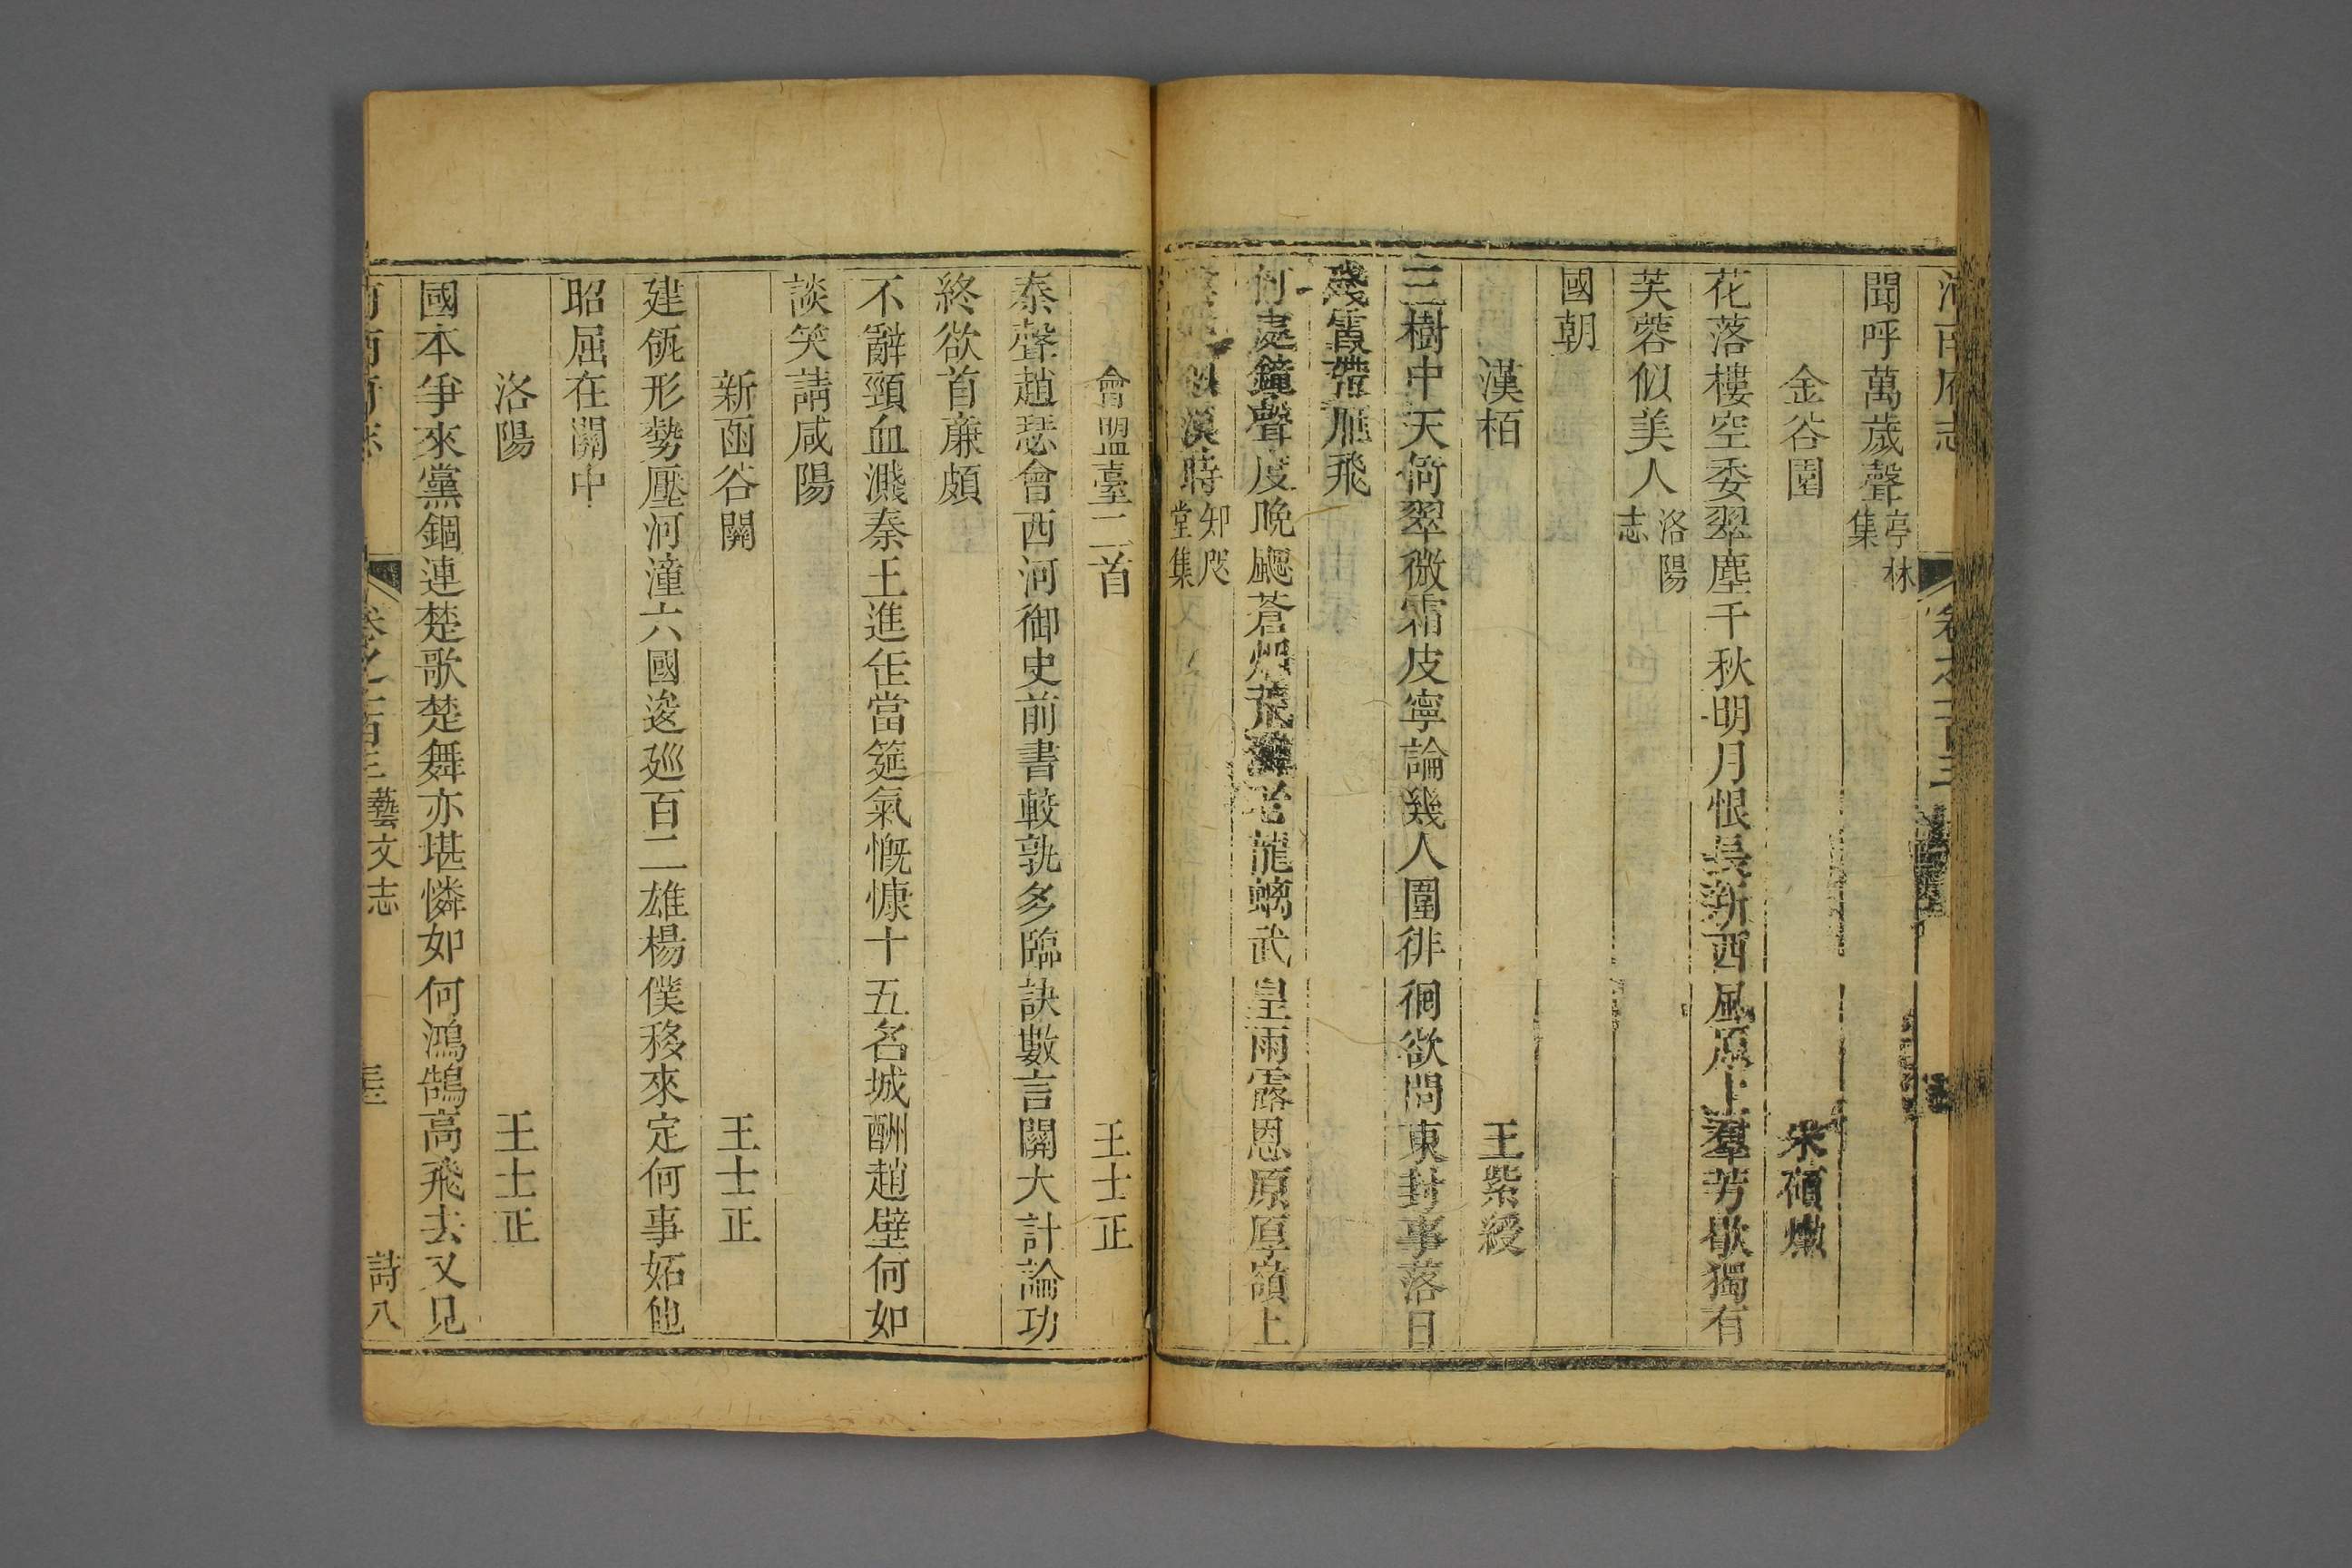 河南府志　卷之一百三
聞呼萬歲聲亭林集
金谷園　朱碩爋
花落樓空委翠塵千秋明月恨長新西風原上羣芳歇獨有
芙蓉似美人洛陽志
國朝
漢栢　王紫綬
三樹中天倚翠微霜皮寧論幾人圍徘徊欲問東封事落日
殘霞帶雁飛
何處鐘聲度晚颸蒼烟荒老龍螭武皇雨露恩原厚嶺上
漢時知咫堂集
會盟臺二首　王士正
秦聲趙瑟會西河御史前書較孰多臨訣數言關大計論功
終欲首廉頗
不辭頸血濺秦王進缶當筵氣慨慷十五名城酬趙壁何如
談笑請咸陽
新函谷關　王士正
建瓴形勢壓河潼六國逡廵百二雄楊僕移來定何事妬他
昭屈在關中
洛陽　王士正
國本爭來黨錮連楚歌楚舞亦堪憐如何鴻鵠高飛去又見
河南府志　卷之一百三　藝文志　詩八